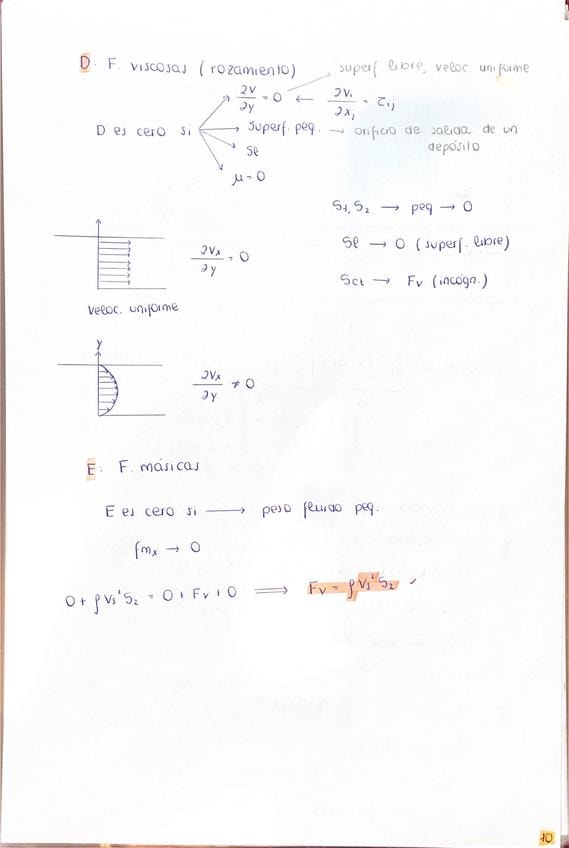 D: F. viscosas (rozamiento) → superf. libre, veloc. uniforme
∂v/∂y = 0 ← ∂vi/∂xj = τij
D es cero si → superf. peq. → orificio de salida de un depósito
Sl
μ = 0
S1, S2 → peq → 0
Sl → 0 (superf. libre)
Sct → Fv (incógn.)
∂vx/∂y = 0
veloc. uniforme
y
∂vx/∂y ≠ 0
E: F. másicas
E es cero si → peso fluido peq.
fmx → 0
0 + ρ Vs² S2 = 0 + Fv + 0 ⟹ Fv = ρ Vs² S2
10